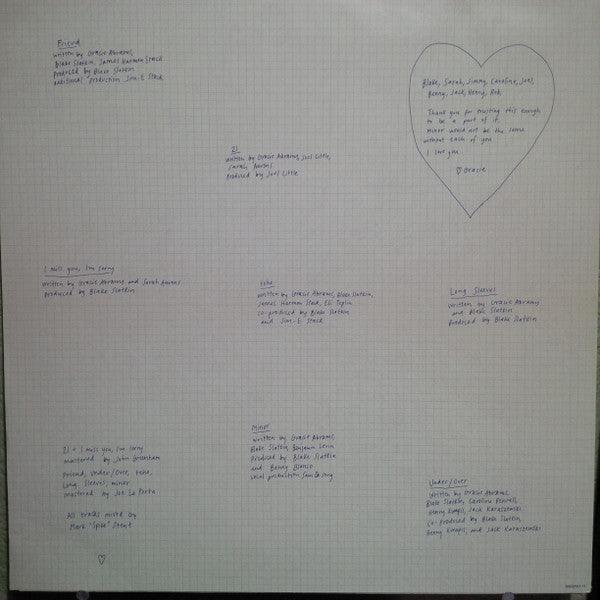 Friend
written by Gracie Abrams,
Blake Slatkin, James Harmon Stack
Produced by Blake Slatkin
additional production Jim-E Stack
Blake, Sarah, Jimmy, Caroline, Joel,
Benny, Jack, Henry, Rob,
Thank you for trusting this enough
to be a part of it.
minor would not be the same
without each of you
I love you.
♡ Gracie
21
written by Gracie Abrams, Joel Little,
Sarah Aarons
Produced by Joel Little
I miss you, I'm sorry
written by Gracie Abrams and Sarah Aarons
Produced by Blake Slatkin
tehe
written by Gracie Abrams, Blake Slatkin,
James Harmon Stack, Eli Teplin
co-produced by Blake Slatkin
and Jim-E Stack
Long Sleeves
written by Gracie Abrams
and Blake Slatkin
Produced by Blake Slatkin
21 + I miss you, I'm sorry
mastered by John Greenham
Friend, Under/Over, tehe,
Long Sleeves, minor
mastered by Joe La Porta
All tracks mix'd by
Mark "Spike" Stent
♡
Minor
written by Gracie Abrams,
Blake Slatkin, Benjamin Levin
Produced by Blake Slatkin
and Benny Blanco
vocal production
Under/Over
written by Gracie Abrams,
Blake Slatkin, Caroline Pennell,
Henry Kwapis, Jack Karaszewski
Co-Produced by Blake Slatkin,
Henry Kwapis, and Jack Karaszewski